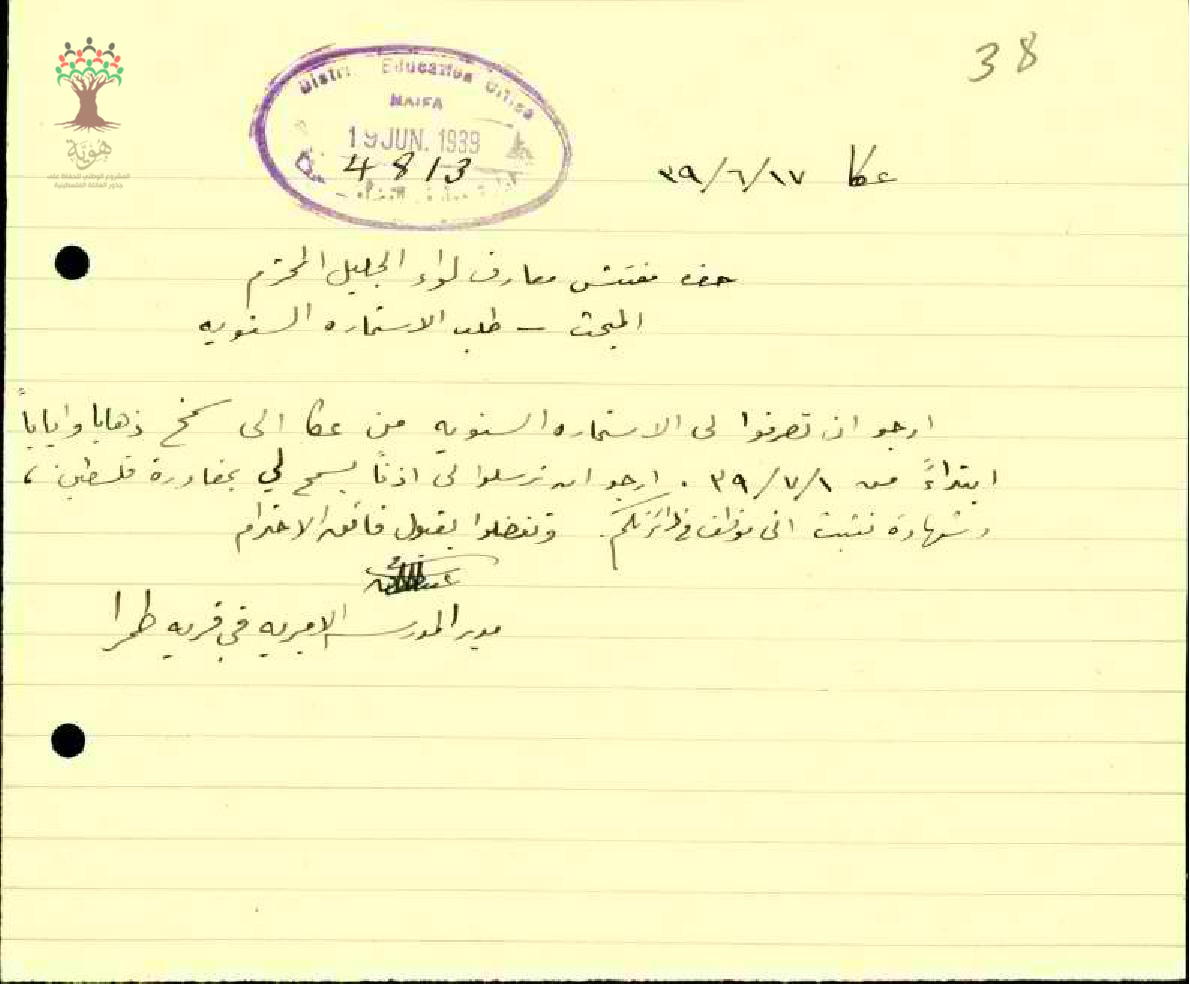 38
District Education Office
HAIFA
19 JUN. 1939
4813
هوية
المشروع الوطني للحفاظ على
جذور العائلة الفلسطينية
عكا ٣٩/٦/١٧
حضرة مفتش معارف لواء الجليل المحترم
المبحث – طلب الاستماره السنويه
ارجو ان تصرفوا لى الاستماره السنويه من عكا الى سمخ ذهابا واياباً
ابتداءً من ٣٩/٧/١ . ارجو ان ترسلوا لى اذناً يسمح لي بمغادرة فلسطين ،
وشهادة تثبت انى موظف فى دائرتكم. وتفضلوا بقبول فائق الاحترام
مدير المدرسه الاميريه في قريه طمرا